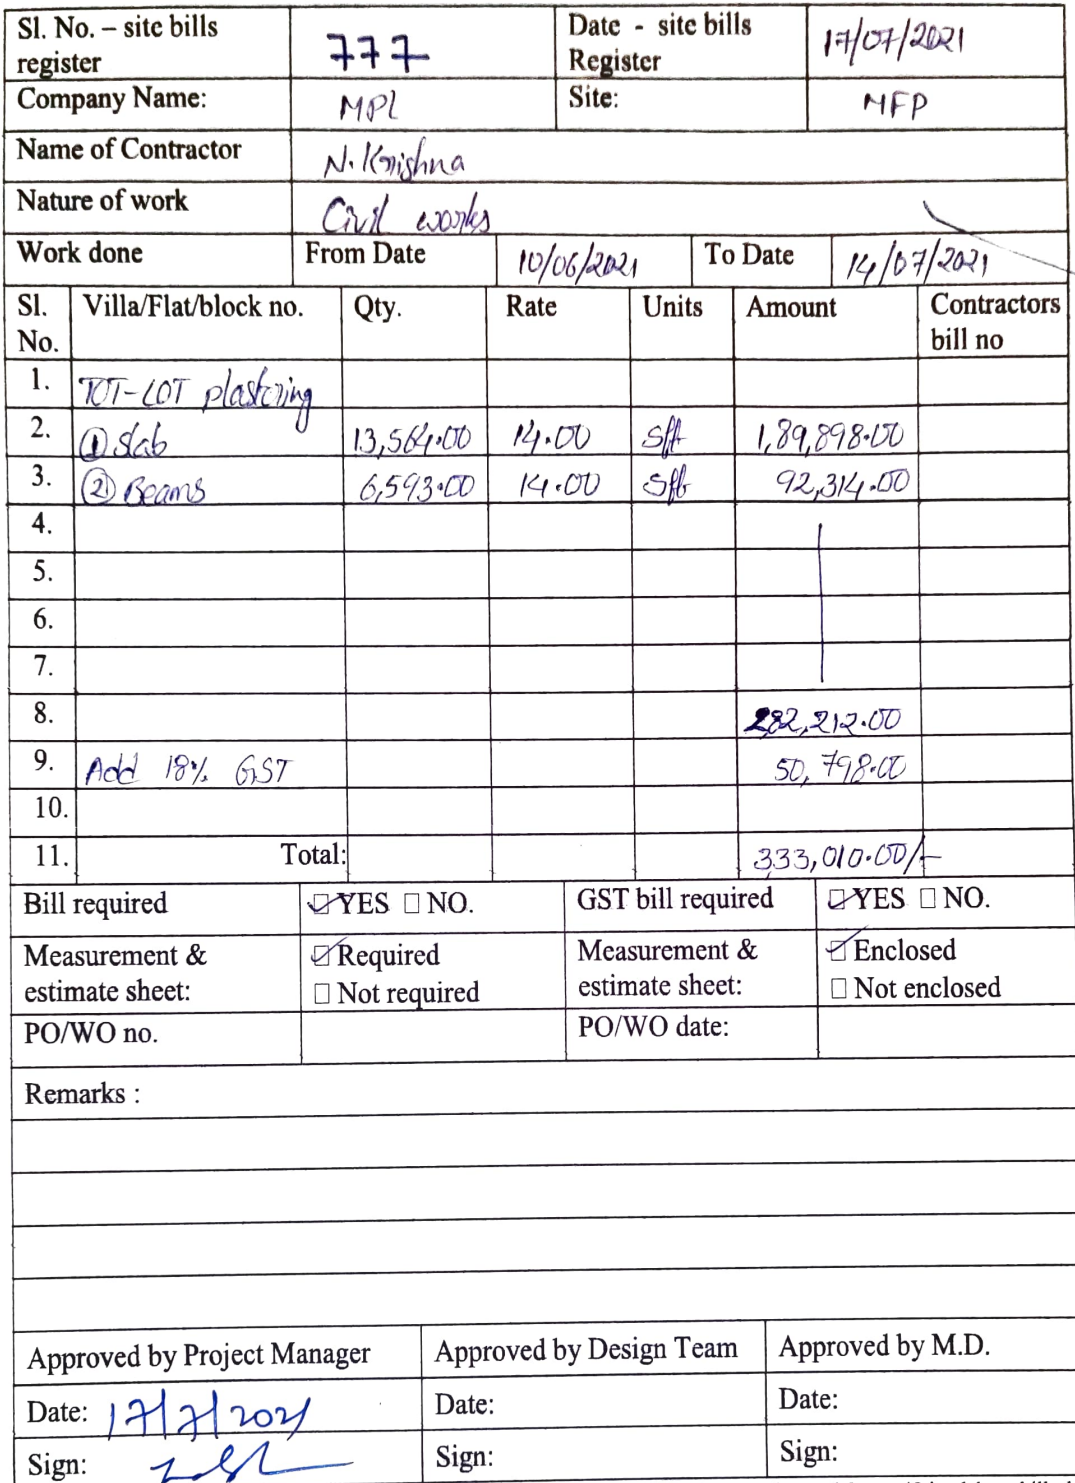 Sl. No. – site bills register 777 Date - site bills Register 17/07/2021
Company Name: MPL Site: MFP
Name of Contractor N. Krishna
Nature of work Civil works
Work done From Date 10/06/2021 To Date 14/07/2021
Sl. No. Villa/Flat/block no. Qty. Rate Units Amount Contractors bill no
1. TOT-LOT plastering
2. ① Slab 13,564.00 14.00 Sft 1,89,898.00
3. ② Beams 6,593.00 14.00 Sft 92,314.00
4.
5.
6.
7.
8. 282,212.00
9. Add 18% GST 50,798.00
10.
11. Total: 333,010.00/-
Bill required ☑ YES ☐ NO. GST bill required ☑ YES ☐ NO.
Measurement & estimate sheet: ☑ Required ☐ Not required Measurement & estimate sheet: ☑ Enclosed ☐ Not enclosed
PO/WO no. PO/WO date:
Remarks :
Approved by Project Manager Approved by Design Team Approved by M.D.
Date: 17/7/2021 Date: Date:
Sign: Sign: Sign: